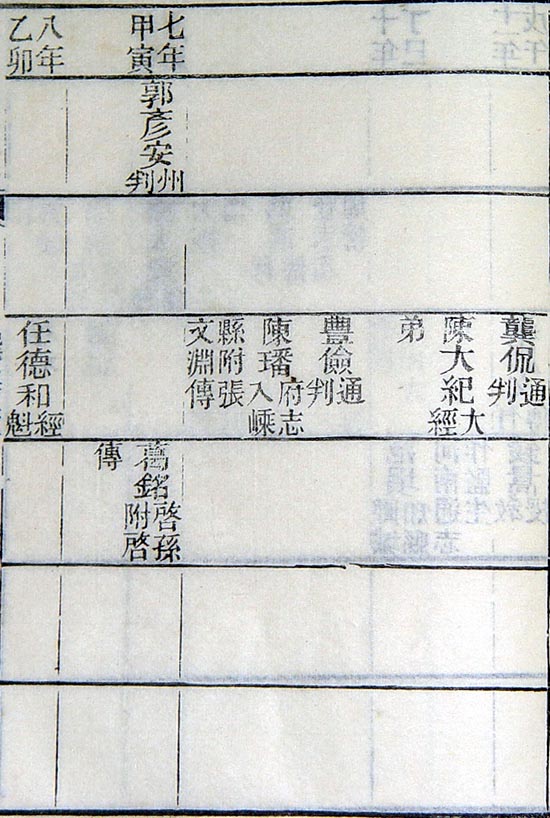 龔侃通判
陳大紀大經
弟
豐儉通判
陳璠府志入嵊
縣附張
文淵傳
七年
甲寅
郭彥安州判
葛銘啓孫附啓
傳
八年
乙卯
任德和經魁